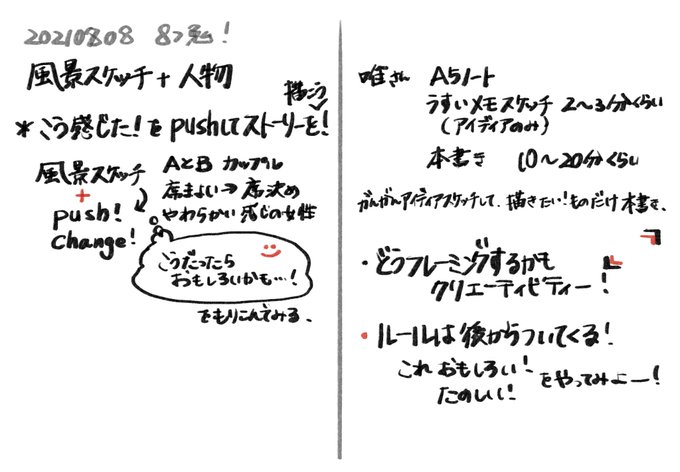 20210808 8コ勉!
風景スケッチ+人物
描こう
*こう感じた!をpushしてストーリーを!
風景スケッチ
+
push!
change!
AとB カップル
席まよい→席決め
やわらかい感じの女性
こうだったら
おもしろいかも…!
でもりこんでみる、
唯さん A5ノート
うすいメモスケッチ 2~3分くらい
(アイディアのみ)
本書き 10~20分くらい
がんがんアイディアスケッチして、描きたい!ものだけ本書き、
・どうフレーミングするかも
クリエーティビティー!
・ルールは後からついてくる!
これおもしろい!
たのしい!
をやってみよー!